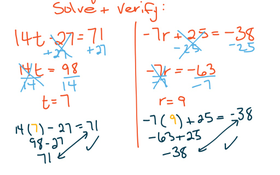 Solve + verify:
14t - 27 = 71
+27 +27
14t = 98
14 14
t = 7
14(7) - 27 = 71
98 - 27
71 ✓
-7r + 25 = -38
-25 -25
-7r = -63
-7 -7
r = 9
-7(9) + 25 = -38
-63 + 25
-38 ✓